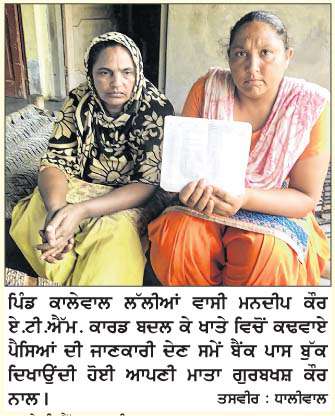 ਪਿੰਡ ਕਾਲੇਵਾਲ ਲੱਲੀਆਂ ਵਾਸੀ ਮਨਦੀਪ ਕੌਰ
ਏ.ਟੀ.ਐੱਮ. ਕਾਰਡ ਬਦਲ ਕੇ ਖਾਤੇ ਵਿਚੋਂ ਕਢਵਾਏ
ਪੈਸਿਆਂ ਦੀ ਜਾਣਕਾਰੀ ਦੇਣ ਸਮੇਂ ਬੈਂਕ ਪਾਸ ਬੁੱਕ
ਦਿਖਾਉਂਦੀ ਹੋਈ ਆਪਣੀ ਮਾਤਾ ਗੁਰਬਖਸ਼ ਕੌਰ
ਨਾਲ। ਤਸਵੀਰ : ਧਾਲੀਵਾਲ